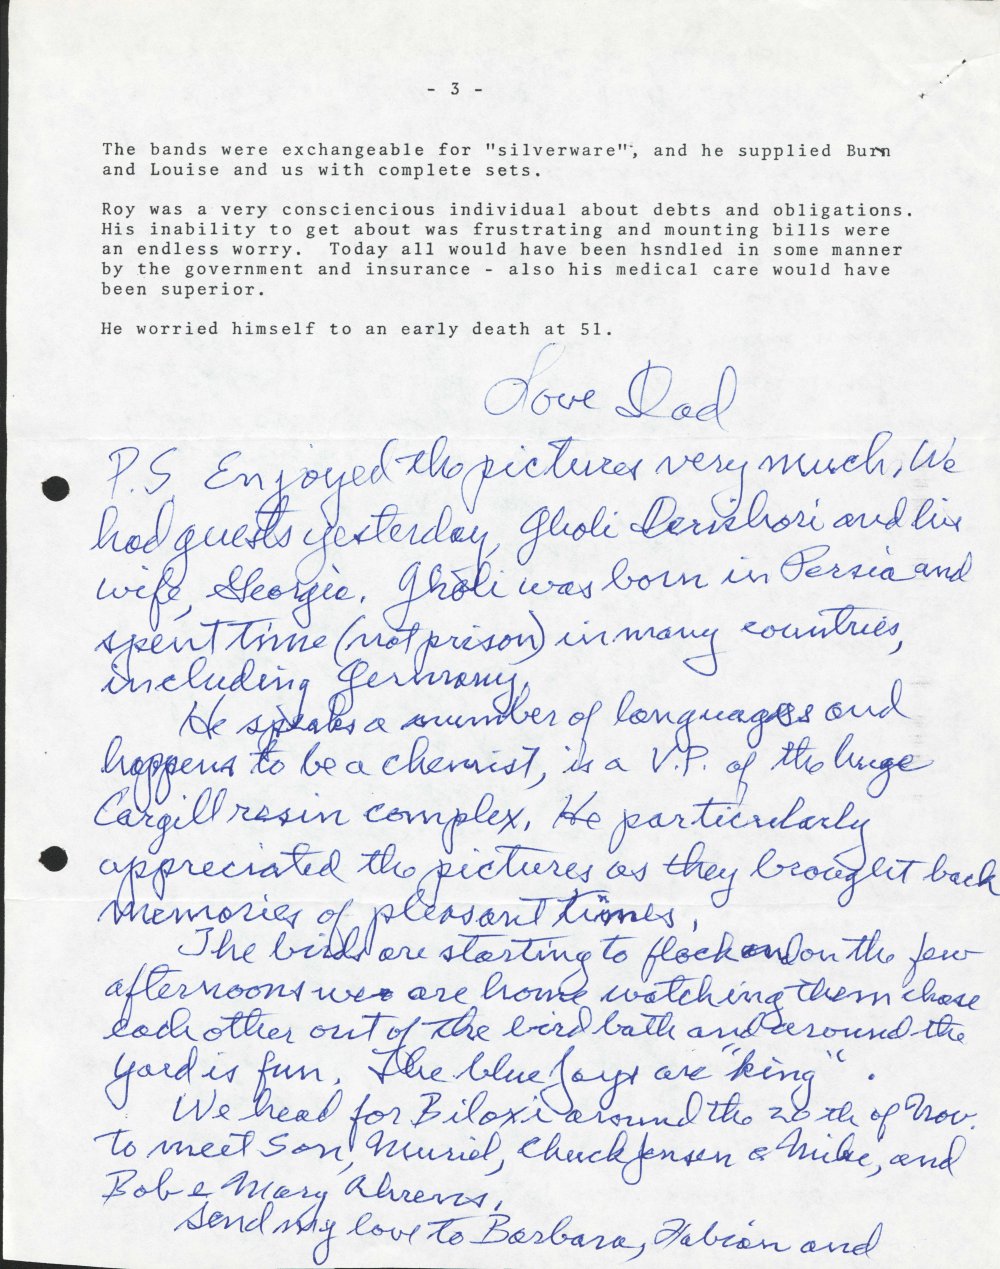 - 3 -
The bands were exchangeable for "silverware", and he supplied Burn
and Louise and us with complete sets.
Roy was a very consciencious individual about debts and obligations.
His inability to get about was frustrating and mounting bills were
an endless worry.  Today all would have been hsndled in some manner
by the government and insurance - also his medical care would have
been superior.
He worried himself to an early death at 51.
Love Dad
P.S. Enjoyed the pictures very much. We
had guests yesterday, Gholi and his
wife, Georgie. Gholi was born in Persia and
spent time (not prison) in many countries,
including Germany.
He speaks a number of languages and
happens to be a chemist, is a V.P. of the huge
Cargill resin complex. He particularly
appreciated the pictures as they brought back
memories of pleasant times.
The birds are starting to flock and on the few
afternoons we are home watching them chase
each other out of the bird bath and around the
yard is fun. The blue Jays are "king".
We head for Biloxi around the 20th of Nov.
to meet Son, Muriel, Chuck Jensen & Mike, and
Bob & Mary Ahrens.
Send my love to Barbara, Fabian and